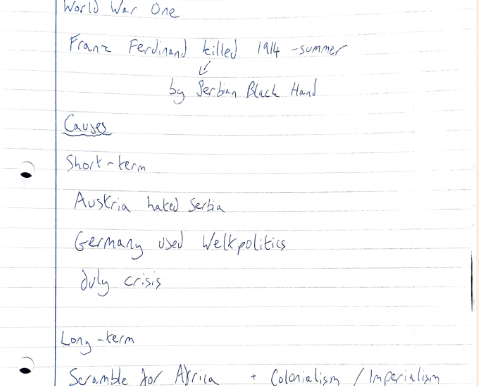 World War One
Franz Ferdinand killed 1914 - summer
by Serbian Black Hand
Causes
Short-term
Austria hated Serbia
Germany used Weltpolitics
July crisis
Long-term
Scramble for Africa + Colonialism / Imperialism